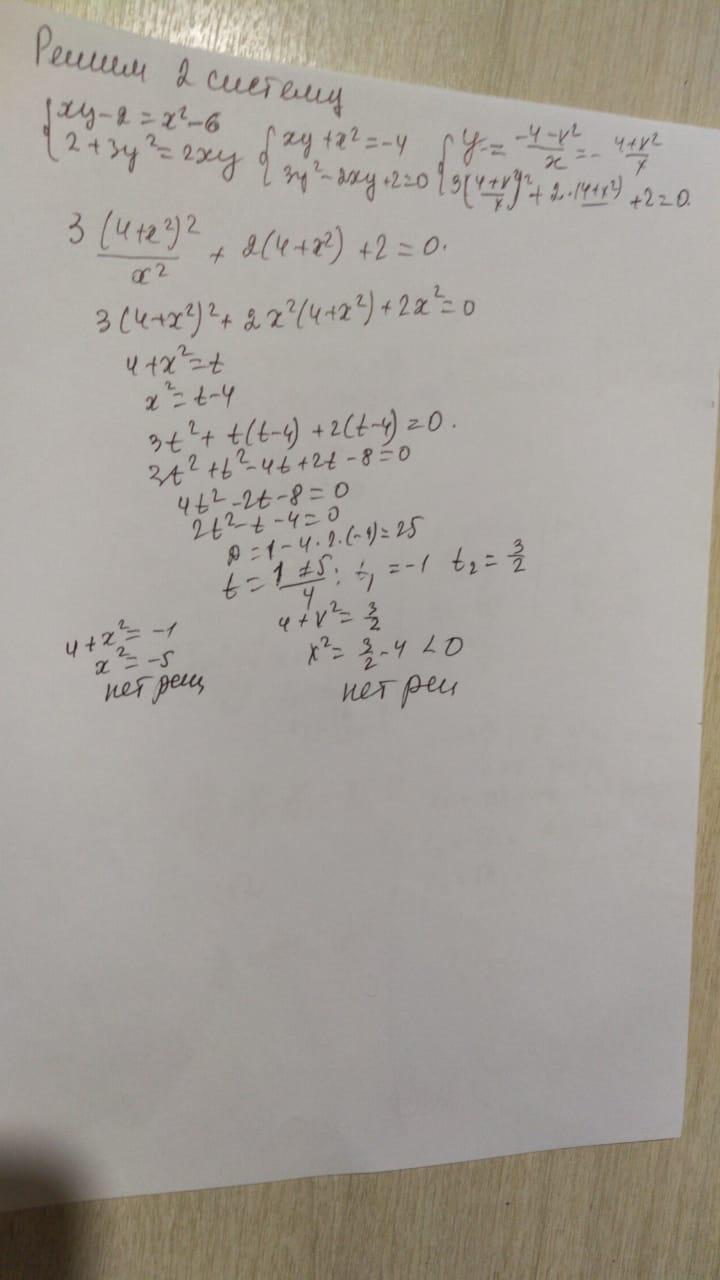 Решим 2 систему
{xy-2=x²-6 {xy+x²=-4 {y=(-4-x²)/x=-(4+x²)/x
{2+3y²=2xy {3y²-2xy+2=0 {3((4+x²)/x)²+2·(4+x²)+2=0
3(4+x²)²/x² + 2(4+x²)+2=0.
3(4+x²)²+2x²(4+x²)+2x²=0
4+x²=t
x²=t-4
3t²+t(t-4)+2(t-4)=0.
3t²+t²-4t+2t-8=0
4t²-2t-8=0
2t²-t-4=0
D=1-4·2·(-4)=25
t=(1±5)/4; t₁=-1 t₂=3/2
4+x²=-1 4+x²=3/2
x²=-5 x²=3/2-4<0
нет реш нет реш